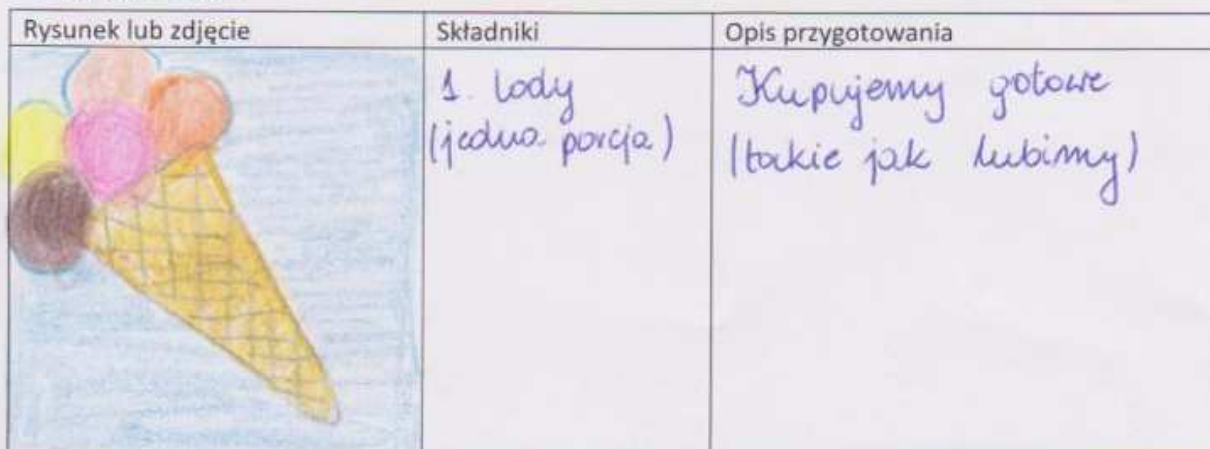 Rysunek lub zdjęcie
Składniki
Opis przygotowania
1. lody
(jedna porcja)
Kupujemy gotowe
(takie jak lubimy)